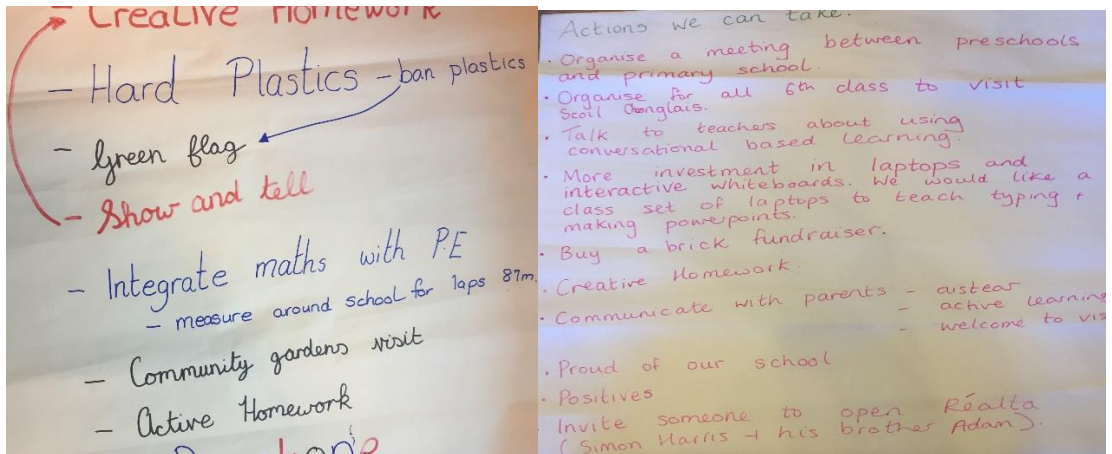 - Creative Homework
- Hard Plastics - ban plastics
- Green flag
- Show and tell
- Integrate maths with P.E
- measure around school for laps 87m.
- Community gardens visit
- Active Homework
Actions we can take.
· Organise a meeting between preschools
and primary school.
· Organise for all 6th class to visit
Scoil
· Talk to teachers about using
conversational based learning.
· More investment in laptops and
interactive whiteboards. We would like a
class set of laptops to teach typing +
making powerpoints.
· Buy a brick fundraiser.
· Creative Homework.
· Communicate with parents - aistear
- active learning
- welcome to vis
· Proud of our school
· Positives
Invite someone to open Réalta
(Simon Harris + his brother Adam).